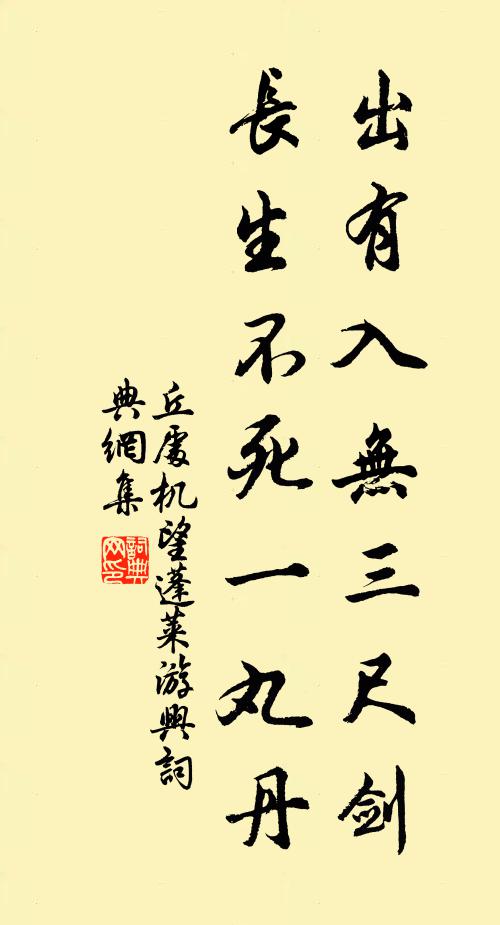 出有入無三尺劍
長生不死一丸丹
丘處机望蓬萊游興詞
典網集
詞典网印